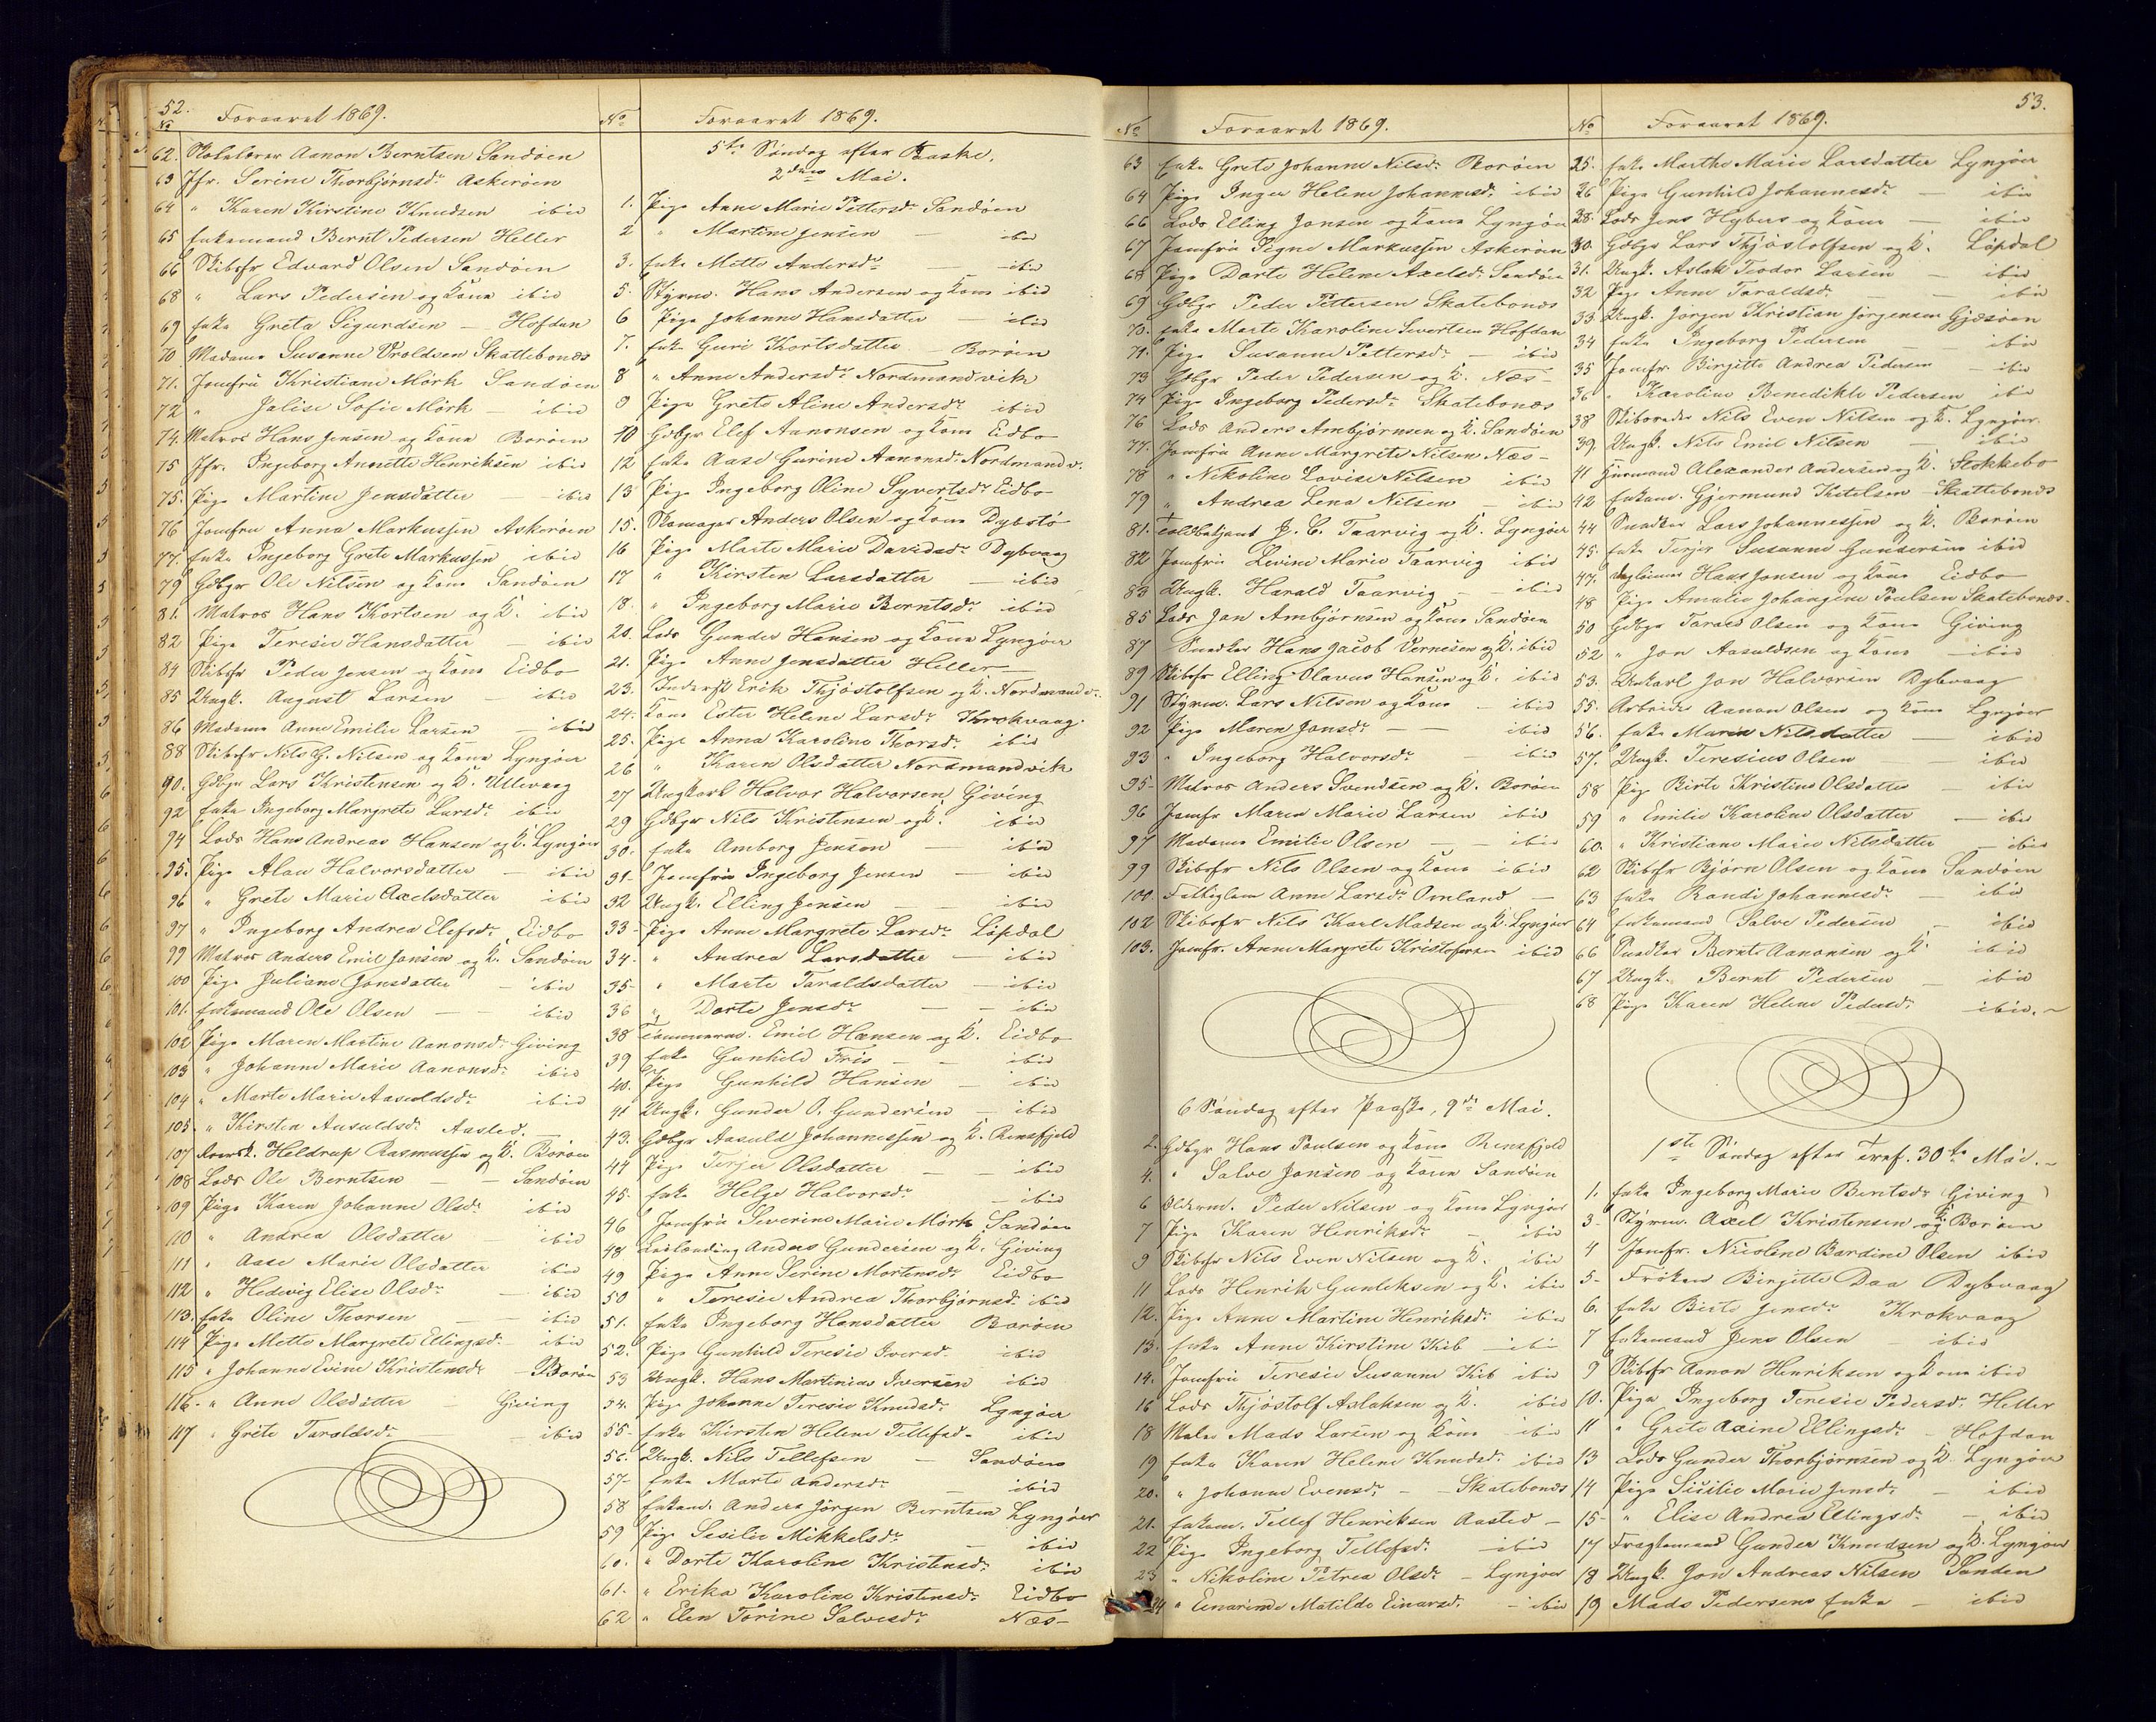 52.
No Foraaret 1869.
62. Skolelærer Aanon Berntsen Sandøen
63 Jfr. Serine Thorbjørnsdr Askerøen
64 " Karen Kirstine Knudsen ibid
65 Enkemand Bernt Pedersen Heller
66 Skibsfr Edvard Olsen Sandøen
68 " Lars Pedersen og Kone ibid
69 Enke Greta Sigurdsen — Hofdan
70 Madame Susanne Vroldsen Skattebonæs
71. Jomfru Kristiane Mörk Sandøen
72 " Jalise Sofie Mörk — ibid
74. Matros Hans Jensen og Kone Borøen
75 Jfr. Ingeborg Annette Henriksen ibid
75. Pige Martine Jensdatter — ibid
76 Jomfru Anna Markussen Askerøen
77. Enke Ingeborg Grete Markussen ibid
79 Gdbgr Ole Nilsen og Kone Sandøen
81. Matros Hans Kortsen og K. ibid
82 Pige Teresie Hansdatter — ibid
84 Skibsfr Peder Jensen og Kone Eidbo
85 Ungk. August Larsen — ibid
86 Madame Anne Emilie Larsen — ibid
88 Skibsfr Nils G. Nilsen og Kone Lyngøer
90. Gdbgr Lars Kristensen og K. Ullevaag
92 Enke Ingeborg Margrete Larsdr ibid
94 Lods Hans Andreas Hansen og K. Lyngøer
95. Pige Alau Halvorsdatter — ibid
96 " Grete Marie Axelsdatter ibid
97 " Ingeborg Andrea Elefsdr Eidbo
99 Matros Anders Emil Jansen og K. Sandøen
100 Pige Juliane Jonsdatter — ibid
101. Enkemand Ole Olsen — — ibid
102 Pige Maren Martine Aanonsdr Giving
103 " Johanne Marie Aanonsdr ibid
104 " Marte Marie Aasuldsdr ibid
105. " Kirsten Aasuldsdr Aasted. —
107 Heldrup Rasmussen og K. Borøen
108 Lods Ole Berntsen — — Sandøen
109 Pige Karen Johanne Olsdr ibid
110 " Andrea Olsdatter — ibid
111 " Aase Marie Olsdatter ibid
112 " Hedevig Elise Olsdr — ibid
113. Enke Oline Thorsen — ibid
114 Pige Mette Margrete Ellingsd. ibid
115 " Johanne Evine Kristensdr — Borøen
116. " Anne Olsdatter — Giving
117 " Grete Taraldsdr — ibid
No Foraaret 1869.
5te Søndag efter Paaske.
2den Mai.
1. Pige Anne Marie Pettersdr Sandøen
2 " Martine Jensen — ibid
3. Enke Mette Andersdr — — ibid
5. Styrm. Hans Andersen og Kone ibid
6 Pige Johanne Hansdatter — ibid
7. Enke Guri Kortsdatter — Borøen
8 " Anne Andersdr Nordmandvik
9 Pige Grete Aline Andersdr ibid
10 Gdbgr Elef Aanonsen og Kone Eidbo
12 Enke Aase Gurine Aanonsd. Nordmandv.
13 Pige Ingeborg Oline Syvertsdr Eidbo
15. Skomager Anders Olsen og Kone Dybstø
16 Pige Marte Marie Davidsdr Dybvaag
17 " Kirsten Larsdatter — ibid
18. " Ingeborg Marie Berntsdr ibid
20. Lods Gunder Hansen og Kone Lyngøer
21. Pige Anne Jensdatter Heller —
23. Inderst Erik Thjøstolfsen og K. Nordmandv.
24. Kone Ester Helene Larsdr Krokvaag.
25. Pige Anna Karoline Thorsdr ibid
26 " Karen Olsdatter Nordmandvik
27 Ungkarl Halvor Halvorsen Giving
29 Gdbgr Nils Kristensen og K. ibid
30. Enke Amborg Jensen — ibid
31. Jomfru Ingeborg Jensen — ibid
32 Ungk. Elling Jensen — — ibid
33 Pige Anne Margrete Larsdr Lixdal
34. " Andrea Larsdatter — ibid
35- " Marte Taraldsdatter — ibid
36 " Dorte Jensdr — — ibid
38 Tømmermd. Emil Hansen og K. Eidbo
39 Enke Gunhild Friis — — ibid
40. Pige Gunhild Hansen — ibid
41 Ungk. Gunder O. Gundersen — ibid
43. Gdbgr Aasuld Johannessen og K. Rensfjeld
44 Pige Terjer Olsdatter — — ibid
45. Enke Helge Halvorsdr — ibid
46 Jomfru Severine Marie Mörk Sandøen
48 Leilænding Anders Gundersen og K. Giving
49 Pige Anne Serine Mortensdr Eidbo
50 " Teresie Andrea Thorbjørnsd. ibid
51. Enke Ingeborg Hansdatter Borøen
52. Pige Gunhild Teresie Iversd. ibid
53 Ungk. Hans Martinius Iversen ibid
54. Pige Johanne Teresie Knudsdr Lyngøer
55- Enke Kirsten Helene Tellefsd- ibid
56. Ungk. Nils Tellefsen — Sandøen
57- Enke Marte Andersdr — ibid
58 Enkem. Anders Jørgen Berntsen Lyngøer
59 Pige Sesilie Mikkelsdr — ibid
60. " Dorte Karoline Kristensdr ibid
61. " Erika Karoline Kristensdr Eidbo
62 " Elen Torine Salvesdr Næs—
No Foraaret 1869.
63 Enke Grete Johanne Nilsdr Borøen
64 Pige Inger Helene Johannesd. ibid
66 Lods Elling Jonsen og Kone Lyngøer
67 Jomfru Signe Markussen Askerøen
68 Pige Dorte Helene Axelsd. Sandøen
69 Gdbgr Peder Pettersen Skatebonæs
70. Enke Marte Karoline Sevortsen Hofdan
71. Pige Susanne Pettersdr — ibid
73 Gdbgr Peder Pedersen og K. Næs—
74 Pige Ingeborg Pedersdr Skatebonæs
76 Lods Anders Ambjørnsen og K. Sandøen
77. Jomfru Anne Margrete Nilsen Næs—
78 " Nikoline Lovise Nilsen ibid
79 " Andrea Lena Nilsen — ibid
81. Toldbetjent J. C. Taarvig og K. Lyngøer
82 Jomfru Levine Marie Taarvig ibid
83 Ungk. Harald Taarvig — ibid
85 Lods Jan Ambjørnsen og Kone Sandøen
87 Snedker Hans Jacob Vernesen og K. ibid
89 Skibsfr Elling Olavus Hansen og K. ibid
91 Styrm. Lars Nilsen og Kone — ibid
92 Pige Maren Jonsdr — — ibid
93 " Ingeborg Halvorsdr — ibid
95- Matros Anders Svendsen og K. Borøen
96 Jomfr Maren Marie Larsen ibid
97 Madame Emilie Olsen — — ibid
99 Skibsfr Nils Olsen og Kone ibid
100 Fattiglem Anne Larsdr Omland —
102 Skibsfr Nils Karl Madsen og K. Lyngøer
103. Jomfr. Anne Margrete Kristofersen ibid
6 Søndag efter Paaske, 9de Mai.
2. Gdbgr Hans Poulsen og Kone Rensfjeld
4. " Salve Jonsen og Kone Sandøen
6 Olderm. Peder Nilsen og Kone Lyngøer
7 Pige Karen Henriksdr — ibid
9 Skibsfr Nils Even Nilsen og K. ibid
11 Lods Henrik Gunleksen og K. ibid
12. Pige Anne Martine Henriksdr ibid
13. Enke Anne Kirstine Kib — ibid
14. Jomfru Teresie Susanne Kib ibid
16 Lods Thjøstolf Aslaksen og K. ibid
18 Maler Mads Larsen og Kone ibid
19 Enke Karen Helene Knudsd. ibid
20. " Johanne Evensdr — — Skatebonæs
21. Enkem. Tellef Henriksen Aasted —
22 Pige Ingeborg Tellefsdr — ibid
23 " Nikoline Petrea Olsdr — Lyngøer
24 " Einarinde Matilde Einarsd. — ibid
53.
No Foraaret 1869.
25. Enke Marthe Marie Larsdatter Lyngøer
26 Pige Gunhild Johannesdr — ibid
28. Lods Jens Hybers og Kone — ibid
30. Gdbgr Lars Thjøstolfsen og K. Lixdal
31. Ungk. Aslak Teodor Larsen — ibid
32 Pige Anne Taraldsd. — ibid
33 Ungk. Jørgen Kristian Jørgensen Gjæsøen
34 Enke Ingeborg Pedersen — ibid
35 Jomfr. Birgitte Andrea Pedersen — ibid
36 " Karoline Benedikte Pedersen ibid
38 Skibsreder Nils Even Nilsen og K. Lyngøer.
39. Ungk. Nils Emil Nilsen — ibid
41 Huusmand Alexander Andersen og K. Stokkebo
42 Enkem. Gjermund Ketelsen Skattebonæs
44 Snedker Lars Johannessen og K. Borøen
45. Enke Terjer Susanne Gundersen ibid
47. Hans Jonsen og Kone Eidbo
48 Pige Amalie Johangine Poulsen Skatebonæs.
50 Gdbgr Tarald Olsen og Kone Giving
52 " Jon Aasuldsen og Kone — ibid
53. Unkarl Jon Halvorsen Dybvaag
55. Arbeider Aanon Olsen og Kone Lyngøer
56. Enke Maren Nilsdatter — ibid
57. Ungk. Teresius Olsen — ibid
58 Pige Birte Kristine Olsdatter — ibid
59 " Emilie Karoline Olsdatter — ibid
60. " Kristiane Marie Nilsdatter — ibid
62 Skibsfr Bjørn Olsen og Kone Sandøen
63 Enke Randi Johannesdr — ibid
64 Enkemand Salve Pedersen — ibid
66 Snedker Bernt Aanonsen og K. ibid
67 Ungk. Bernt Pedersen — ibid
68 Pige Karen Helene Pedersd. ibid.—
1ste Søndag efter Tref. 30te Mai.—
1. Enke Ingeborg Marie Berntsdr Giving
3- Styrm. Axel Kristensen og K. Borøen
4 Jomfr. Nicoline Bardine Olsen ibid
5- Frøken Birgitte Daa Dybvaag
6. Enke Birte Jensdr Krokvaag
7 Enkemand Jens Olsen — ibid
9 Skibsfr Aanon Henriksen og Kone ibid
10. Pige Ingeborg Teresie Pedersd. Heller
11 " Grete Axine Ellingsdr — Hofdan
13 Lods Gunder Thorbjørnsen og K. Lyngøer
14 Pige Sicilie Marie Jensdr — ibid
15- " Elise Andrea Ellingsdr — ibid
17 Fragtemand Gunder Knudsen og K. Lyngøer
18 Ungk. Jon Andreas Nilsen Sanden
19 Mads Pedersens Enke — ibid